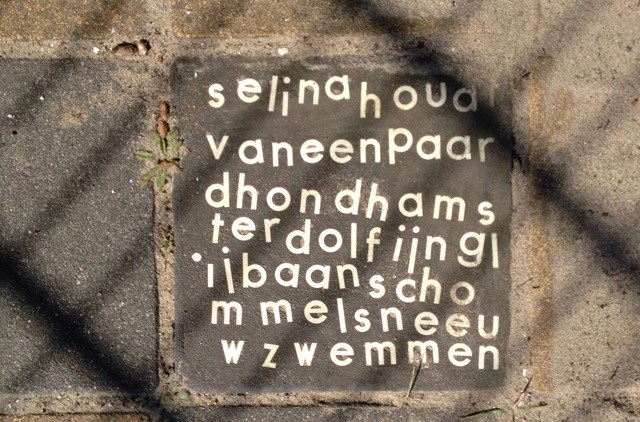 selinahoudt
vaneenpaar
dhondhams
terdolfijngl
ijbaanscho
mmelsneeu
wzwemmen